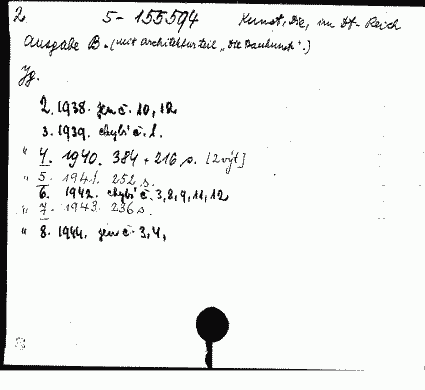 2 5-155594 Kunst, Die, im Dt. Reich
Ausgabe B. (mit Architekturteil „Die Baukunst".)
Jg.
2. 1938. jen č. 10, 12
3. 1939. chybí č. 1.
" 4. 1940. 384 + 216 s. [2 výt]
" 5. 1941. 252 s.
6. 1942. chybí č. 3, 8, 9, 11, 12
" 7. 1943. 236 s.
" 8. 1944. jen č. 3, 4,